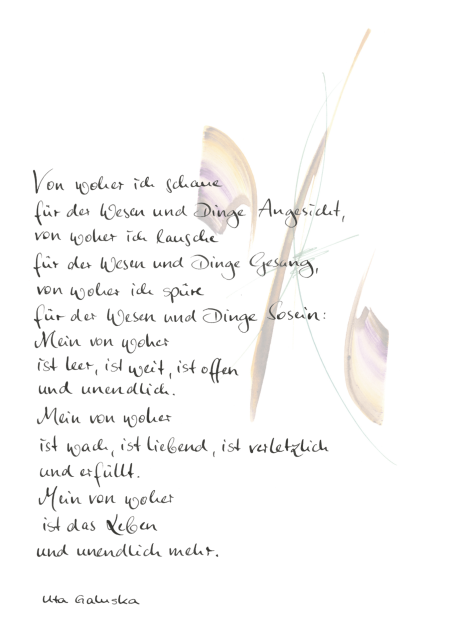 Von woher ich schaue
für der Wesen und Dinge Angesicht,
von woher ich lausche
für der Wesen und Dinge Gesang,
von woher ich spüre
für der Wesen und Dinge Sosein:
Mein von woher
ist leer, ist weit, ist offen
und unendlich.
Mein von woher
ist wach, ist liebend, ist verletzlich
und erfüllt.
Mein von woher
ist das Leben
und unendlich mehr.
Uta Galuska